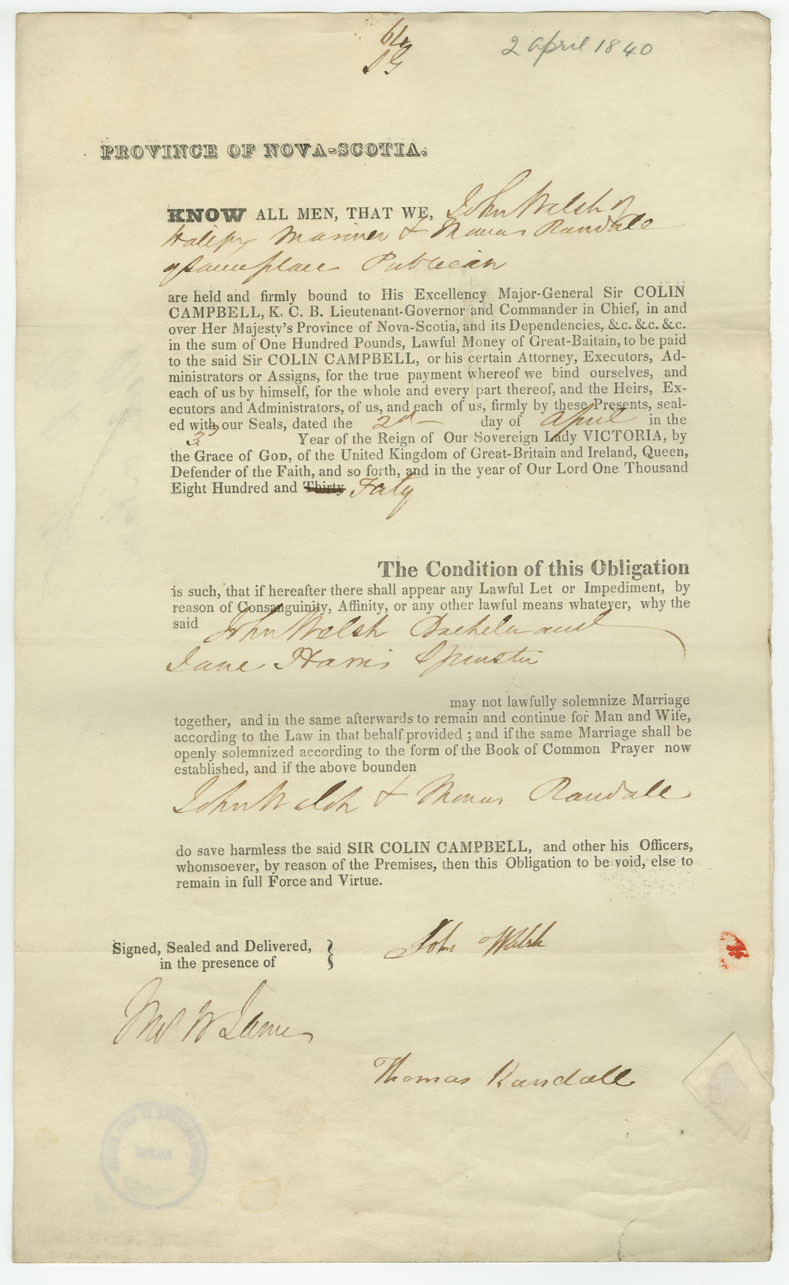 64
2 april 1840
PROVINCE OF NOVA-SCOTIA.
KNOW ALL MEN, THAT WE, John Welsh of
Halifax Mariner & Thomas Randall
of same place Publican
are held and firmly bound to His Excellency Major-General Sir COLIN
CAMPBELL, K. C. B. Lieutenant-Governor and Commander in Chief, in and
over Her Majesty's Province of Nova-Scotia, and its Dependencies, &c. &c. &c.
in the sum of One Hundred Pounds, Lawful Money of Great-Baitain, to be paid
to the said Sir COLIN CAMPBELL, or his certain Attorney, Executors, Ad-
ministrators or Assigns, for the true payment whereof we bind ourselves, and
each of us by himself, for the whole and every part thereof, and the Heirs, Ex-
ecutors and Administrators, of us, and each of us, firmly by these Presents, seal-
ed with our Seals, dated the 2d day of April in the
3d Year of the Reign of Our Sovereign Lady VICTORIA, by
the Grace of GOD, of the United Kingdom of Great-Britain and Ireland, Queen,
Defender of the Faith, and so forth, and in the year of Our Lord One Thousand
Eight Hundred and Thirty Forty
The Condition of this Obligation
is such, that if hereafter there shall appear any Lawful Let or Impediment, by
reason of Consanguinity, Affinity, or any other lawful means whatever, why the
said John Welsh Bachelor and
Jane Harris Spinster
may not lawfully solemnize Marriage
together, and in the same afterwards to remain and continue for Man and Wife,
according to the Law in that behalf provided ; and if the same Marriage shall be
openly solemnized according to the form of the Book of Common Prayer now
established, and if the above bounden
John Welsh & Thomas Randall
do save harmless the said SIR COLIN CAMPBELL, and other his Officers,
whomsoever, by reason of the Premises, then this Obligation to be void, else to
remain in full Force and Virtue.
Signed, Sealed and Delivered,
in the presence of
John Welsh
W James
Thomas Randall